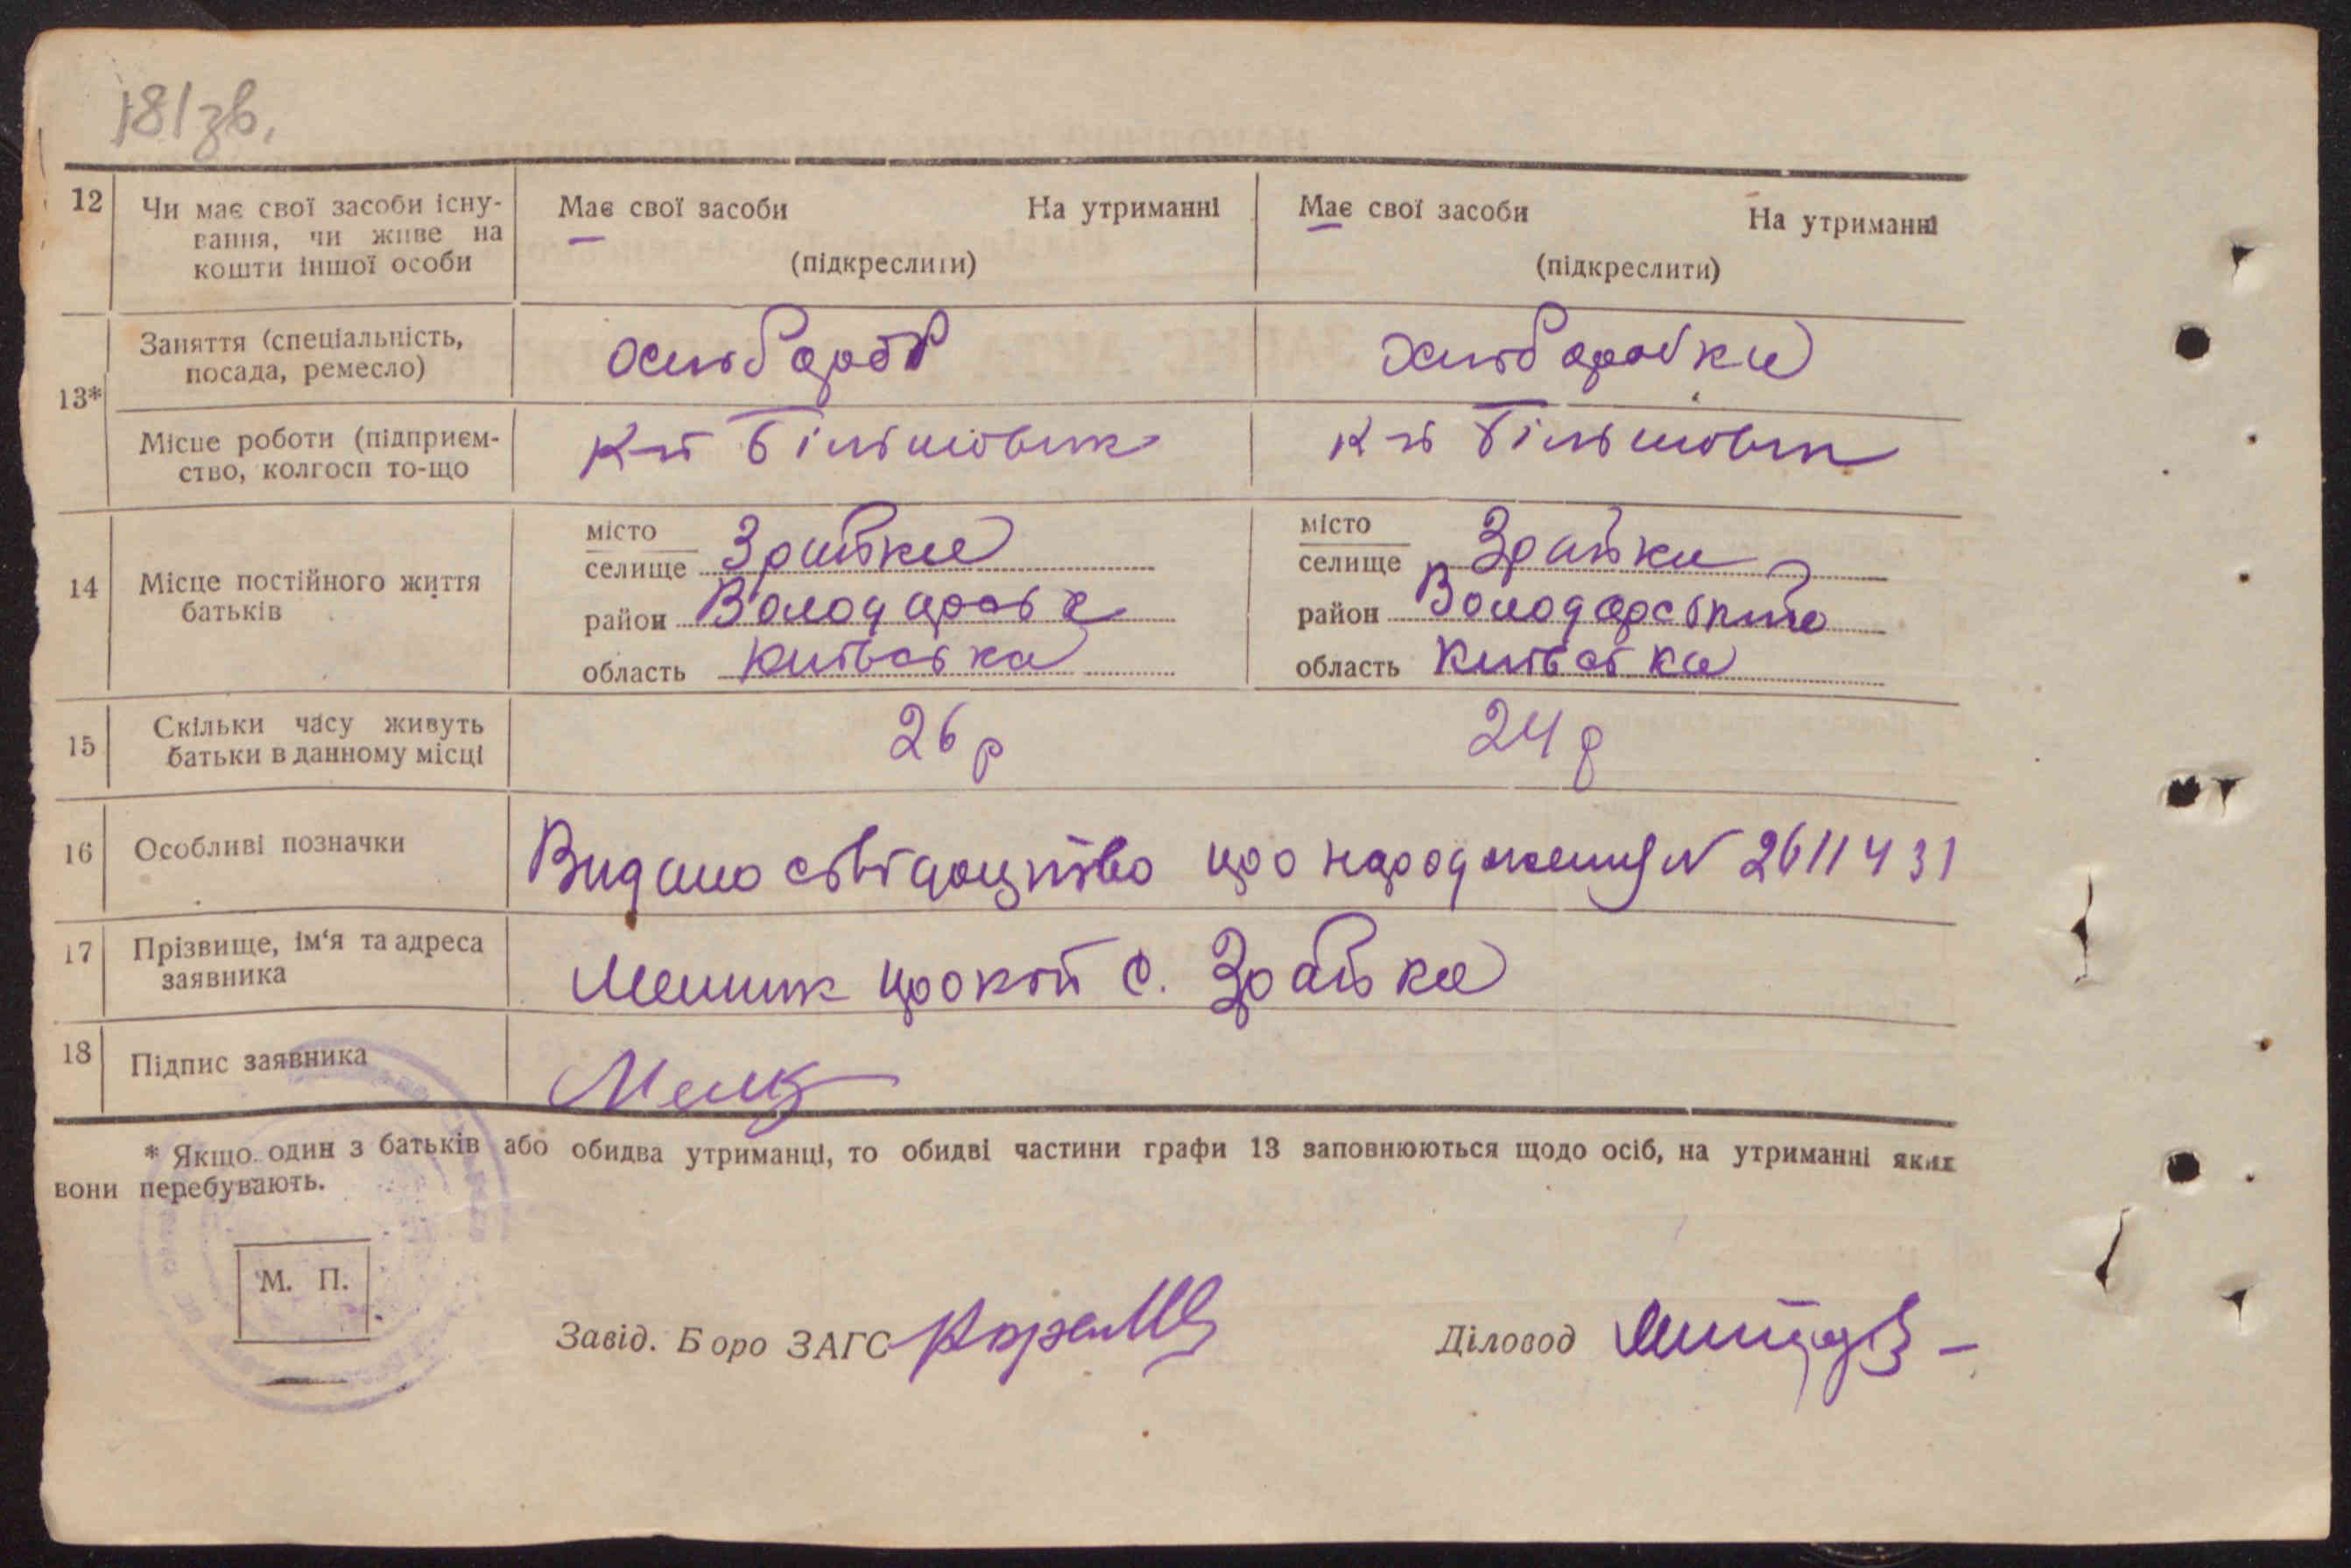 181зв.
12
Чи має свої засоби існу-
вання, чи живе на
кошти іншої особи
Має свої засоби На утриманні
(підкреслити)
Має свої засоби На утриманні
(підкреслити)
13*
Заняття (спеціальність,
посада, ремесло)
хлібороб
хліборобка
Місце роботи (підприєм-
ство, колгосп то-що
К-п Більшовик
К-п Більшовик
14
Місце постійного життя
батьків
місто
селище Зрайки
район Володарськ
область Київська
місто
селище Зрайки
район Володарський
область Київська
15
Скільки часу живуть
батьки в данному місці
26 р
24 р
16
Особливі позначки
Видано свідоцтво про народження N 2611431
17
Прізвище, ім‘я та адреса
заявника
с. Зрайки
18
Підпис заявника
* Якщо один з батьків або обидва утриманці, то обидві частини графи 13 заповнюються щодо осіб, на утриманні яких
вони перебувають.
М. П.
Завід. Боро ЗАГС
Діловод